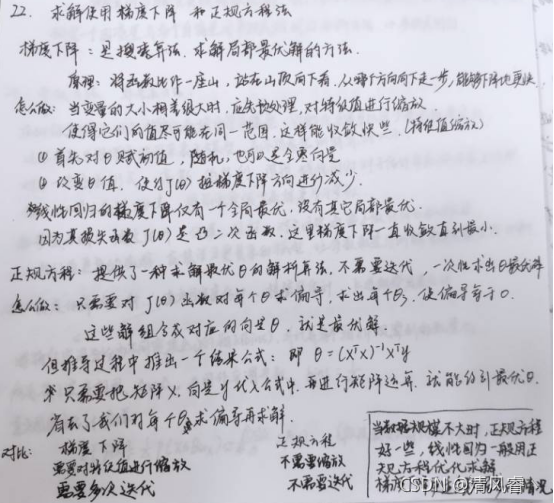 22. 求解使用梯度下降 和正规方程法
梯度下降：是搜索算法，求解局部最优解的方法.
原理：将函数比作一座山，站在山顶向下看，从哪个方向向下走一步，能够下降地更快
怎么做：当变量的大小相差很大时，应先预处理，对特征值进行缩放
使得它们的值尽可能在同一范围，这样能收敛快些.（特征值缩放）
① 首先对θ赋初值，随机，也可以是全零向量
② 改变θ值，使J(θ)按梯度下降方向进行减少.
线性回归的梯度下降仅有一个全局最优，没有其它局部最优.
因为其损失函数 J(θ) 是凸二次函数，这里梯度下降一直收敛直到最小.
正规方程：提供了一种求解最优θ的解析算法，不需要迭代，一次性求出θ最优解
怎么做：只需要对 J(θ) 函数对每个θ求偏导，求出每个θ，使偏导等于0.
这些解组合成对应的向量θ，就是最优解
但推导过程中推出一个结果公式：即 θ=(XᵀX)⁻¹Xᵀy
只需要把矩阵X，向量y代入公式中，再进行矩阵运算，就能得到最优θ.
省去了我们对每个θ求偏导再求解
对比： 梯度下降 正规方程
需要对特征值进行缩放 不需要缩放
需要多次迭代 不需要迭代
当数据规模不大时，正规方程
好一些，线性回归一般用正
规方程优化求解
梯度 情况
CSDN @清风眷